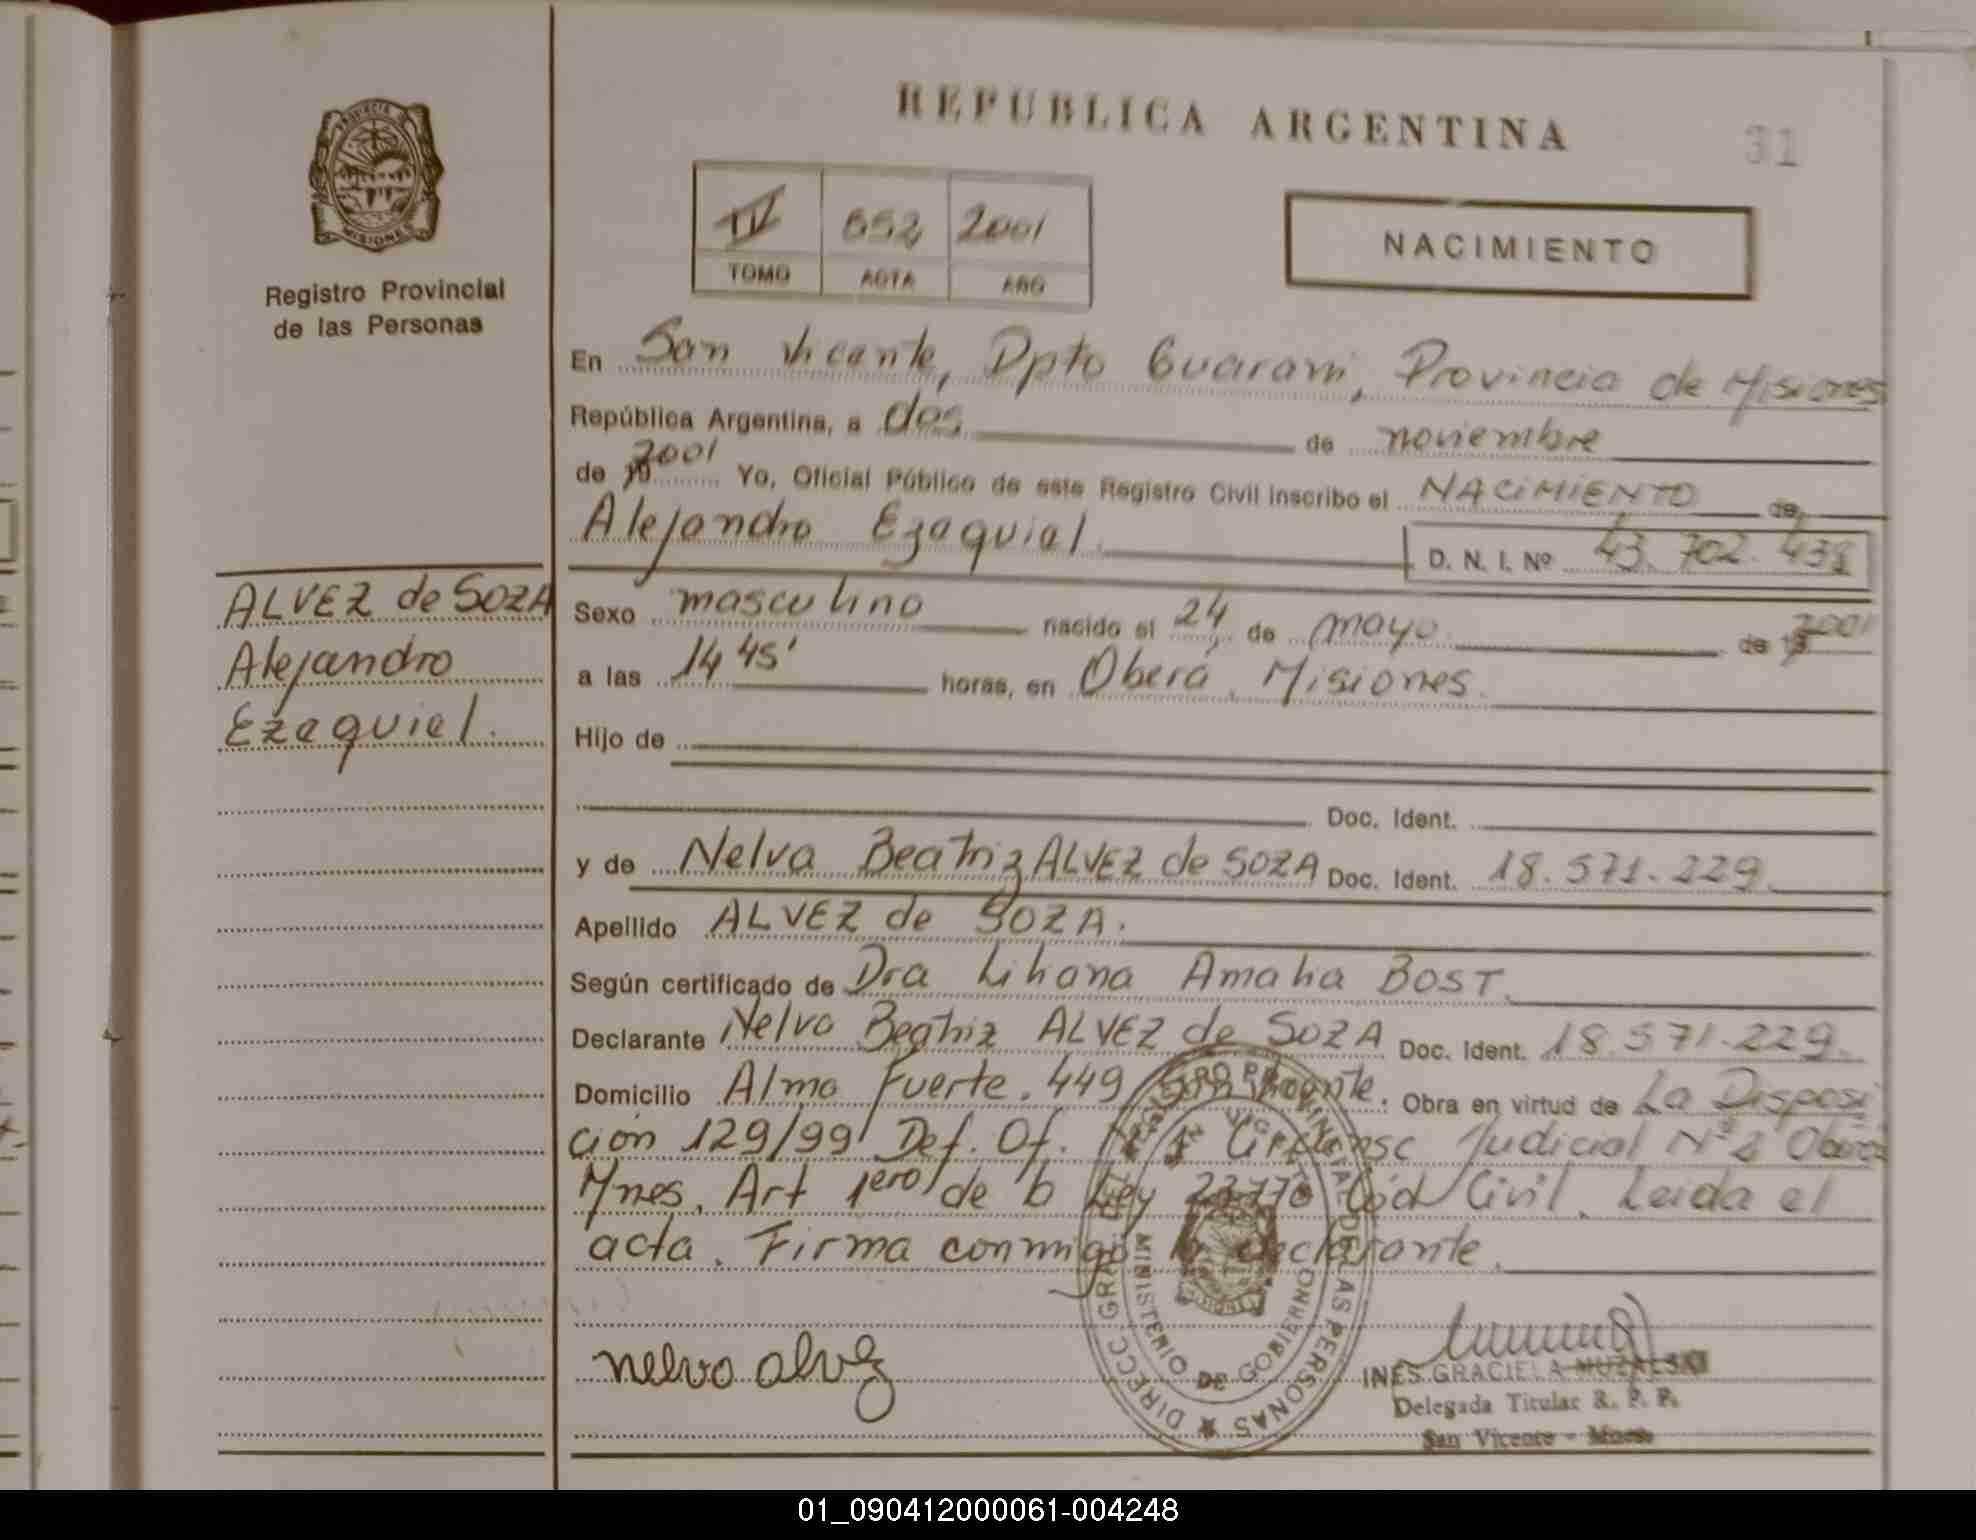 REPUBLICA ARGENTINA
31
PROVINCIA DE
MISIONES
Registro Provincial
de las Personas
IV 652 2001
TOMO ACTA AÑO
NACIMIENTO
En San Vicente, Dpto Guarani, Provincia de Misiones
República Argentina, a dos de noviembre
de 2001 Yo, Oficial Público de este Registro Civil inscribo el NACIMIENTO de
Alejandro Ezequiel. D. N. I. Nº 43.702.438
ALVEZ de SOZA
Alejandro
Ezequiel.
Sexo masculino nacido el 24 de mayo de 2001
a las 14 45' horas, en Oberá, Misiones.
Hijo de
Doc. Ident.
y de Nelva Beatriz ALVEZ de SOZA Doc. Ident. 18.571.229.
Apellido ALVEZ de SOZA.
Según certificado de Dra Liliana Amalia BOST.
Declarante Nelva Beatriz ALVEZ de SOZA Doc. Ident. 18.571.229.
Domicilio Alma Fuerte. 449 San Vicente. Obra en virtud de La Disposi
ción 129/99 Def. Of. Circunsc Judicial Nº 2 Oberá
Mnes. Art 1ero de la Ley Cód Civil. Leida el
acta. Firma conmigo la declarante.
nelva alvez
DIRECC GRAL DEL REGISTRO PROVINCIAL DE LAS PERSONAS
MINISTERIO DE GOBIERNO
INES GRACIELA MUZALSKI
Delegada Titular R. P. P.
San Vicente - Mnes.
01_090412000061-004248